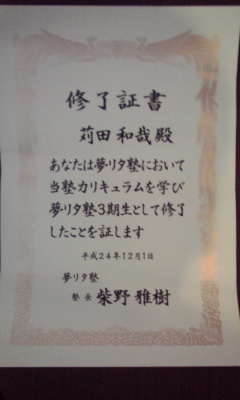 修了証書
苅田 和哉 殿
あなたは夢リタ塾において
当塾カリキュラムを学び
夢リタ塾3期生として修了
したことを証します
平成24年12月1日
夢リタ塾
塾長 柴野 雅樹